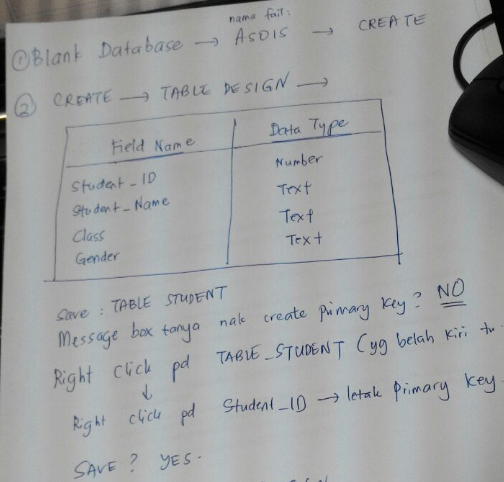 nama fail:
① Blank Database → ASDIS → CREATE
② CREATE → TABLE DESIGN →
Field Name Data Type
Student_ID Number
Student_Name Text
Class Text
Gender Text
Save : TABLE STUDENT
Message box tanya nak create primary key? NO
Right click pd TABLE_STUDENT (yg belah kiri tu
↓
Right click pd Student_ID → letak Primary key.
SAVE? YES.